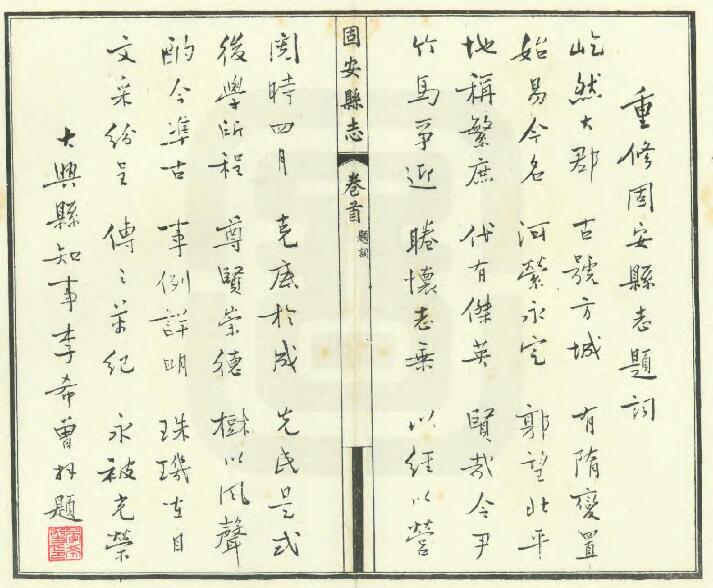 重修固安縣志題詞
屹然大郡 古號方城 有隋變置
始易今名 河縈永定 郭望北平
地稱繁庶 代有傑英 賢哉令尹
竹馬爭迎 睠懷志乘 以經以營
固安縣志 卷首 題詞
閱時四月 克底於成 先民是式
後學所程 尊賢崇德 樹以風聲
酌今準古 事例詳明 珠璣在目
文采紛呈 傳之萬紀 永被光榮
大興縣知事李希曾拜題